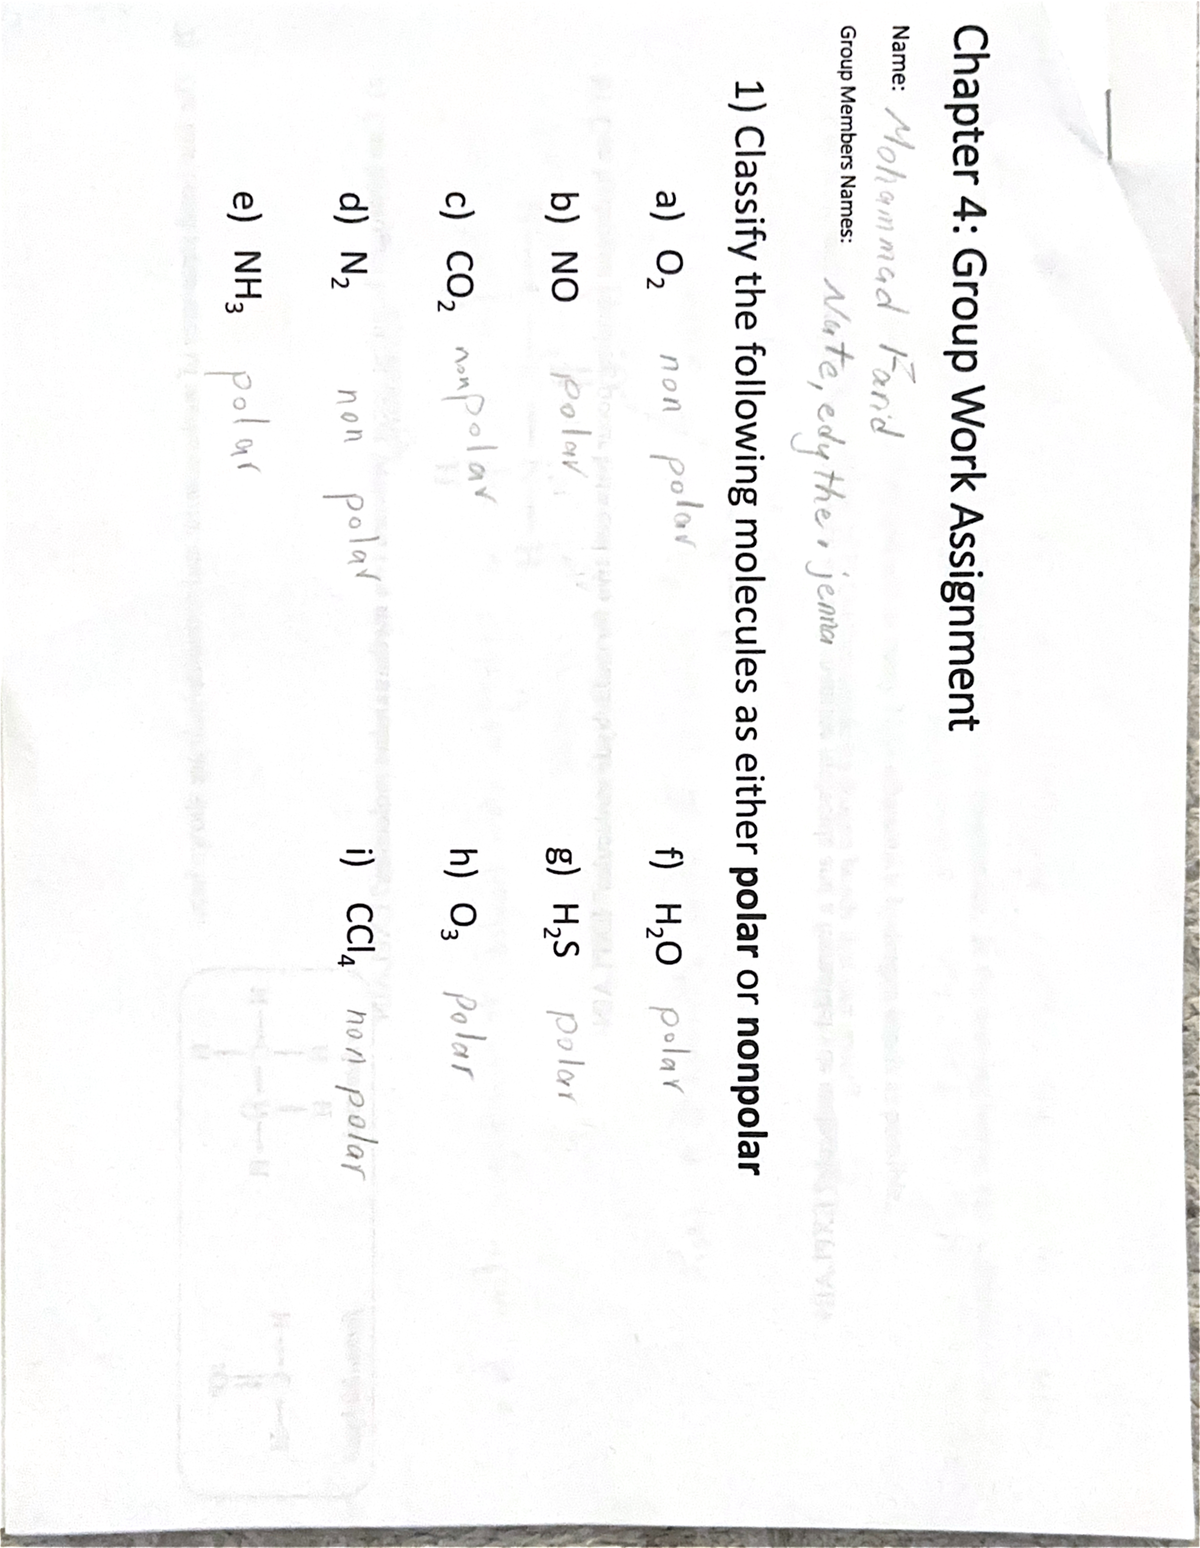 Chapter 4: Group Work Assignment
Name: Mohammad Farid
Group Members Names: Nate, edythe, jenna
1) Classify the following molecules as either polar or nonpolar
a) O₂ non polar
b) NO polar
c) CO₂ nonpolar
d) N₂ non polar
e) NH₃ polar
f) H₂O polar
g) H₂S polar
h) O₃ polar
i) CCl₄ non polar